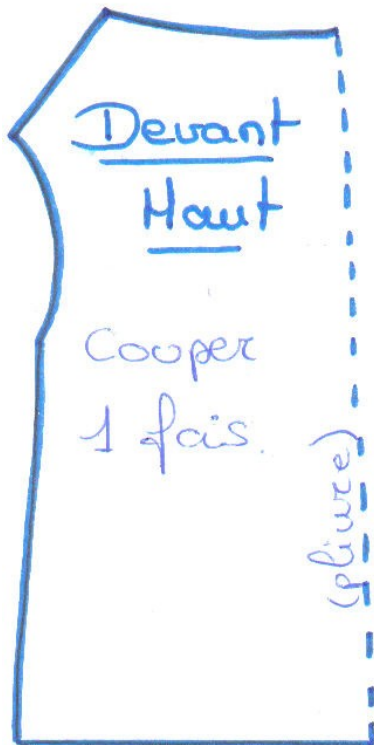 Devant
Haut
Couper
1 fois.
(pliure)